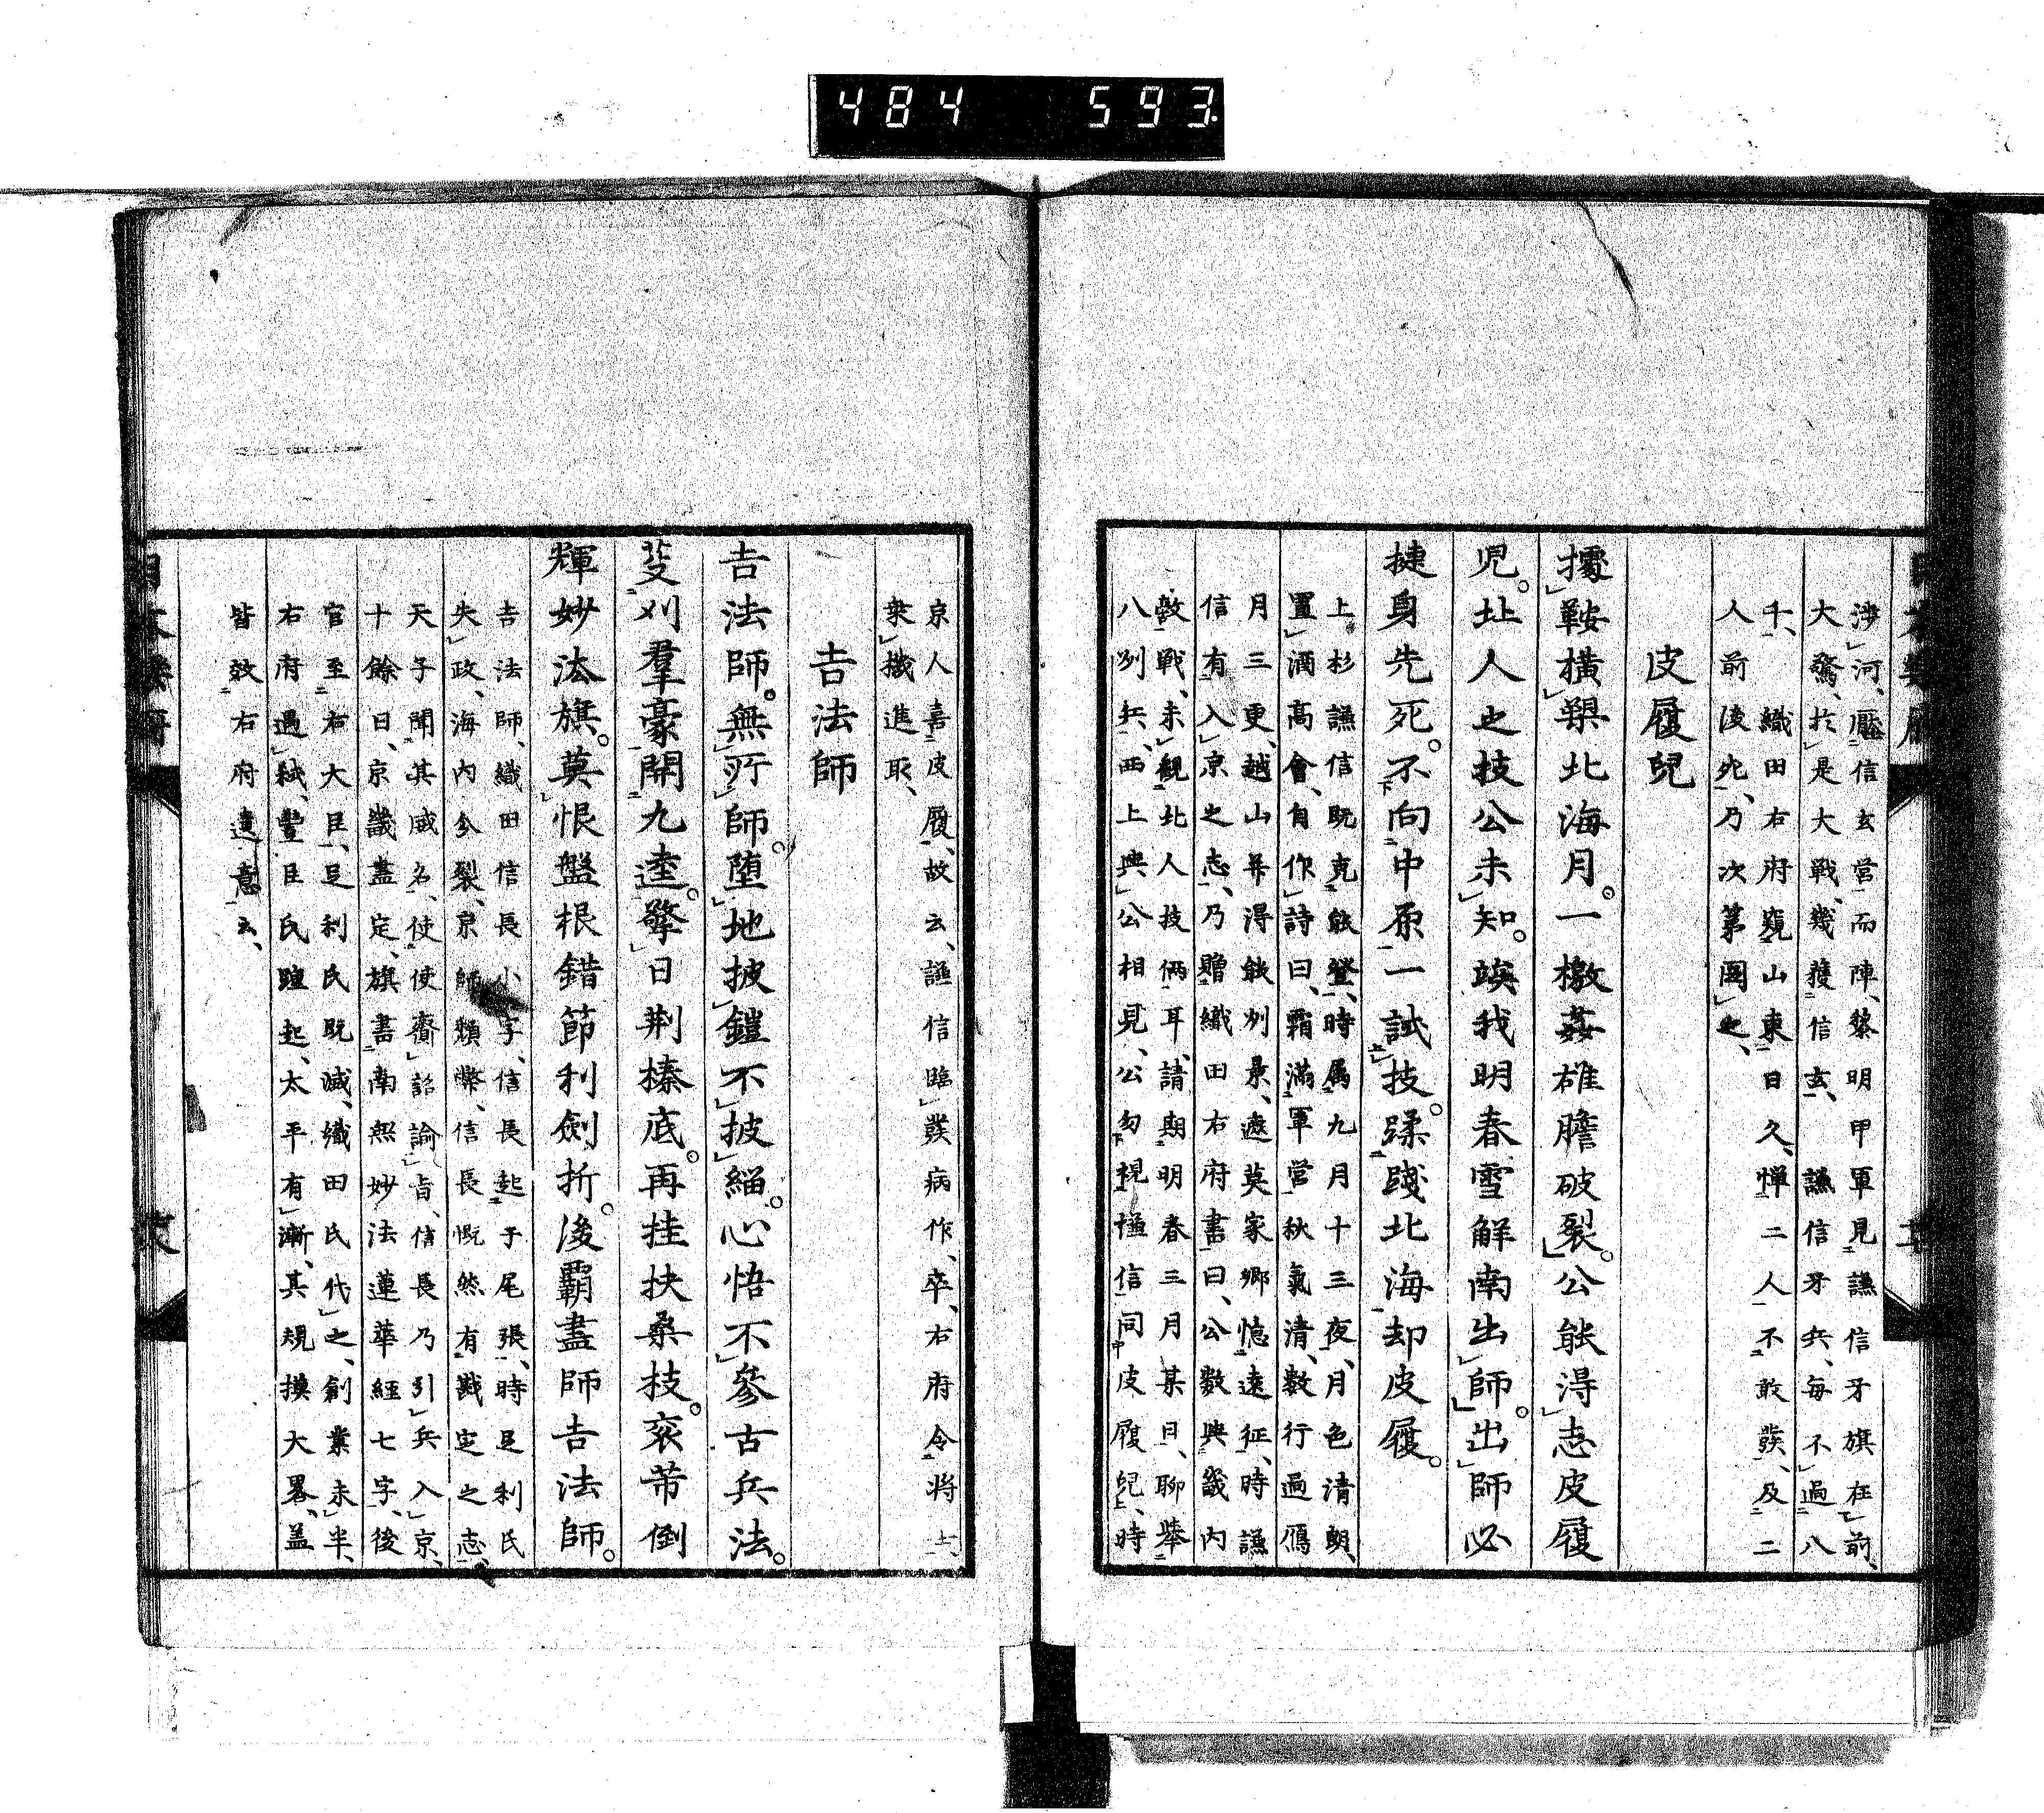 484 593
涉河、壓信玄営而陣、黎明甲軍見謙信牙旗在前、
大驚、於是大戰、幾獲信玄、謙信牙兵、毎不過八
千、織田右府窺山東日久、憚二人不敢發、及二
人前後死、乃次第圖之、
皮履兒
據鞍橫槊北海月。一檄姦雄膽破裂。公能得志皮履
児。北人之技公未知。竢我明春雪解南出師。出師必
捷身先死。不向中原一試技。蹂踐北海却皮履。
上杉謙信既克能登、時属九月十三夜、月色清朗、
置酒高會、自作詩曰、霜滿軍営秋氣清、數行過鴈
月三更、越山并得能州景、遮莫家郷憶遠征、時謙
信有入京之志、乃贈織田右府書曰、公數與畿内
敵戰、未観北人技倆耳、請期明春三月某日、聊挙
八州兵、西上與公相見、公勿視謙信同皮履兒、時
京人嘉皮履、故云、謙信臨發病作、卒、右府令將士
衆機進取、
吉法師
吉法師。無所師。堕地披鎧不披緇。心悟不參古兵法。
芟刈羣豪開九逵。擎日荆榛底。再挂扶桑枝。衮芾倒
輝妙法旗。莫恨盤根錯節利劍折。後覇盡師吉法師。
吉法師、織田信長小字、信長起于尾張、時足利氏
失政、海内分裂、京師頽弊、信長慨然有戡定之志、
天子聞其威名、使使齎詔諭旨、信長乃引兵入京、
十餘日、京畿盡定、旗書南無妙法蓮華經七字、後
官至右大臣、足利氏既滅、織田氏代之、創業未半、
右府遇弑、豐臣氏踵起、太平有漸、其規摸大畧、蓋
皆效右府遺意云、